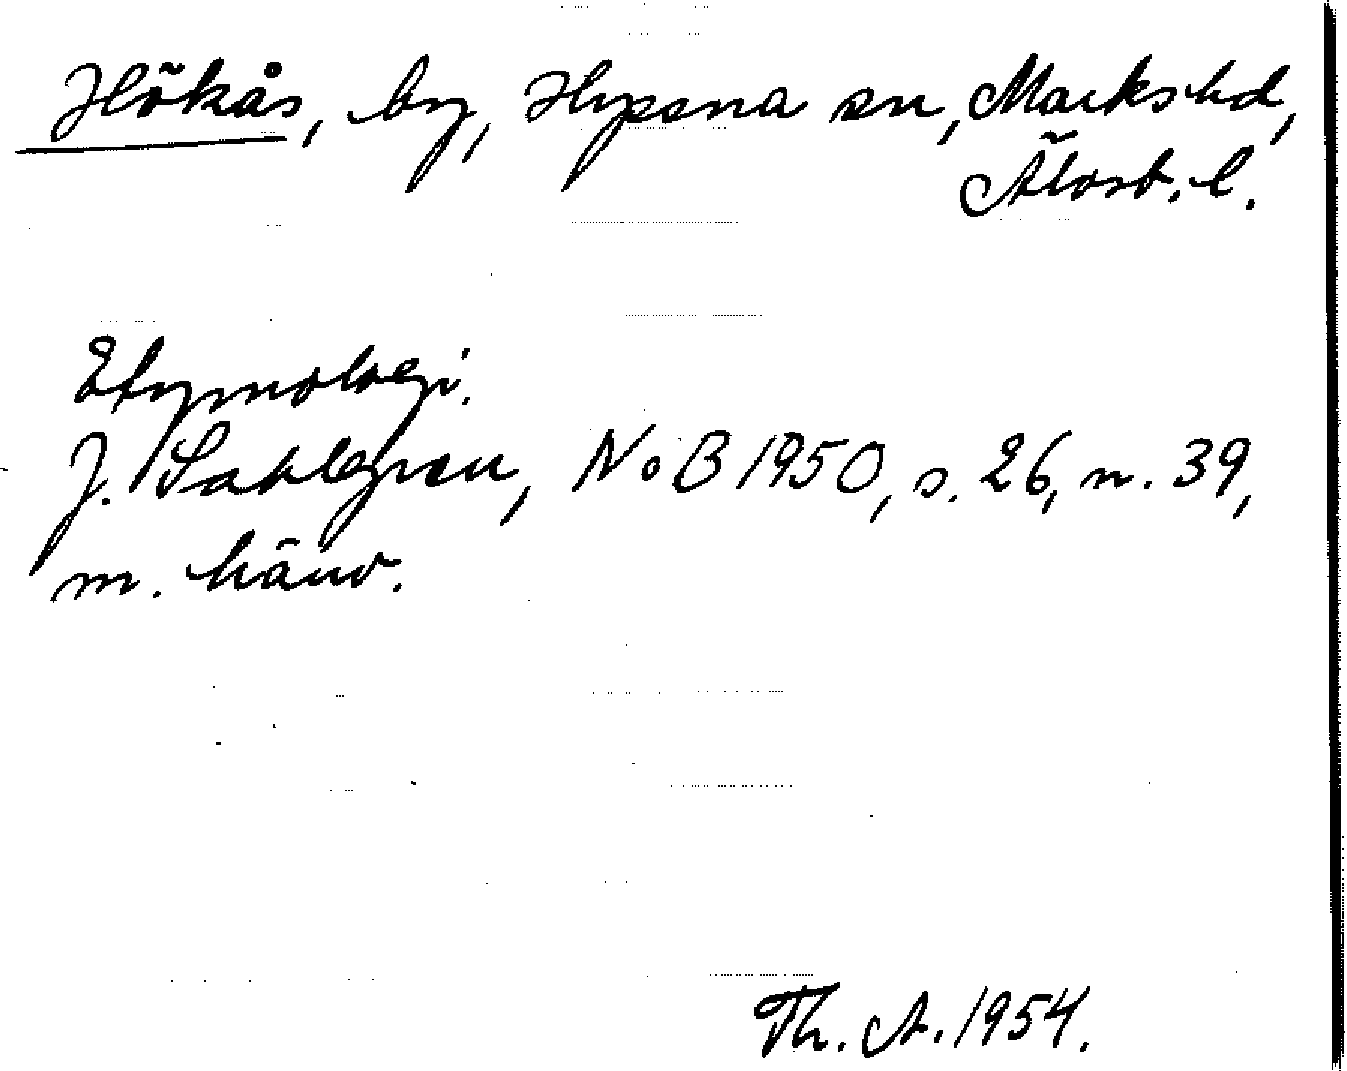 Hökås, by, Hyssna sn, Marks hd,
Älvsb. l.
Etymologi.
J. Sahlgren, NoB 1950, s. 26, n. 39,
m. hänv.
Th. A. 1954.